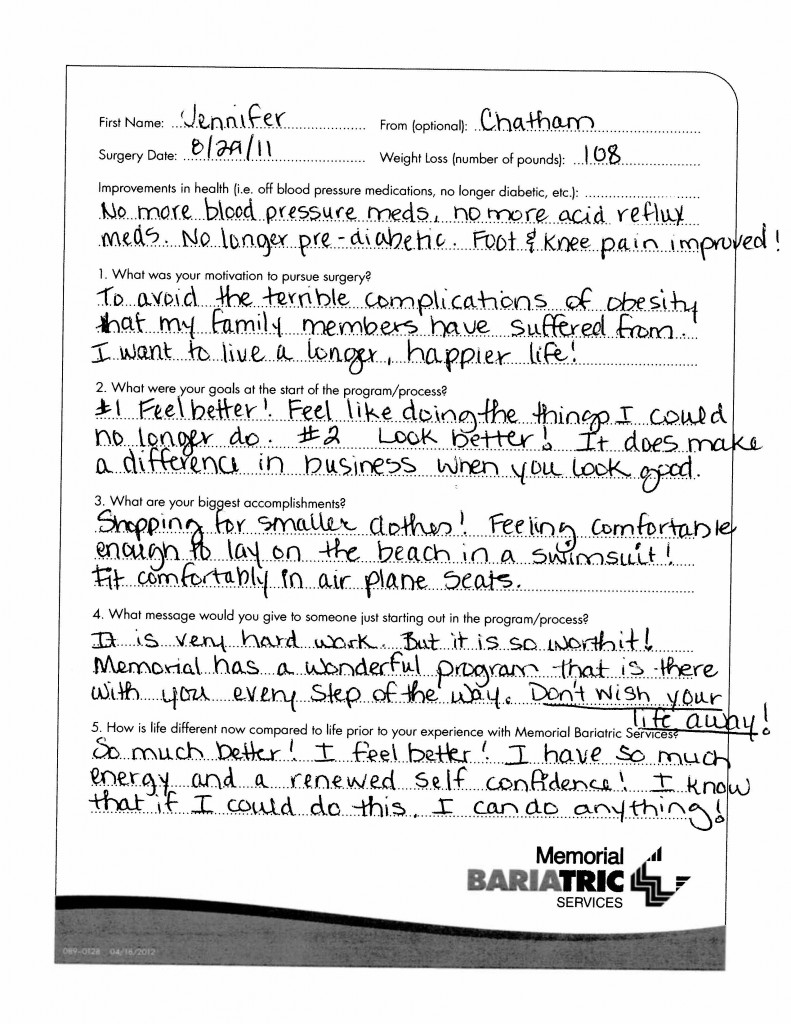 First Name: Jennifer From (optional): Chatham
Surgery Date: 8/29/11 Weight Loss (number of pounds): 108
Improvements in health (i.e. off blood pressure medications, no longer diabetic, etc.):
No more blood pressure meds, no more acid reflux
meds. No longer pre-diabetic. Foot & knee pain improved!
1. What was your motivation to pursue surgery?
To avoid the terrible complications of obesity
that my family members have suffered from.
I want to live a longer, happier life!
2. What were your goals at the start of the program/process?
#1 Feel better! Feel like doing the things I could
no longer do. #2 Look better! It does make
a difference in business when you look good.
3. What are your biggest accomplishments?
Shopping for smaller clothes! Feeling comfortable
enough to lay on the beach in a swimsuit!
Fit comfortably in air plane seats.
4. What message would you give to someone just starting out in the program/process?
It is very hard work. But it is so worth it!
Memorial has a wonderful program that is there
with you every step of the way. Don't wish your
life away!
5. How is life different now compared to life prior to your experience with Memorial Bariatric Services?
So much better! I feel better! I have so much
energy and a renewed self confidence! I know
that if I could do this, I can do anything!
Memorial
BARIATRIC
SERVICES
089-0128 04/16/2012